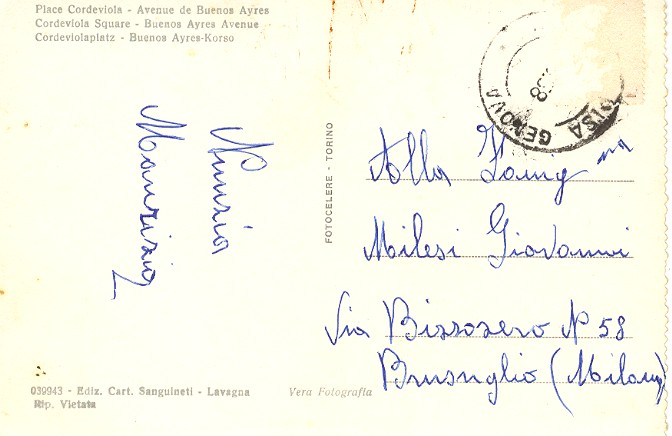 Place Cordeviola - Avenue de Buenos Ayres
Cordeviola Square - Buenos Ayres Avenue
Cordeviolaplatz - Buenos Ayres-Korso
PISA GENOVA
58
Nunzia
Maurizio
FOTOCELERE - TORINO
Alla Famig na
Milesi Giovanni
Via Bizzozero N 58
Brusuglio (Milano)
039943 - Ediz. Cart. Sanguineti - Lavagna
Rip. Vietata
Vera Fotografia